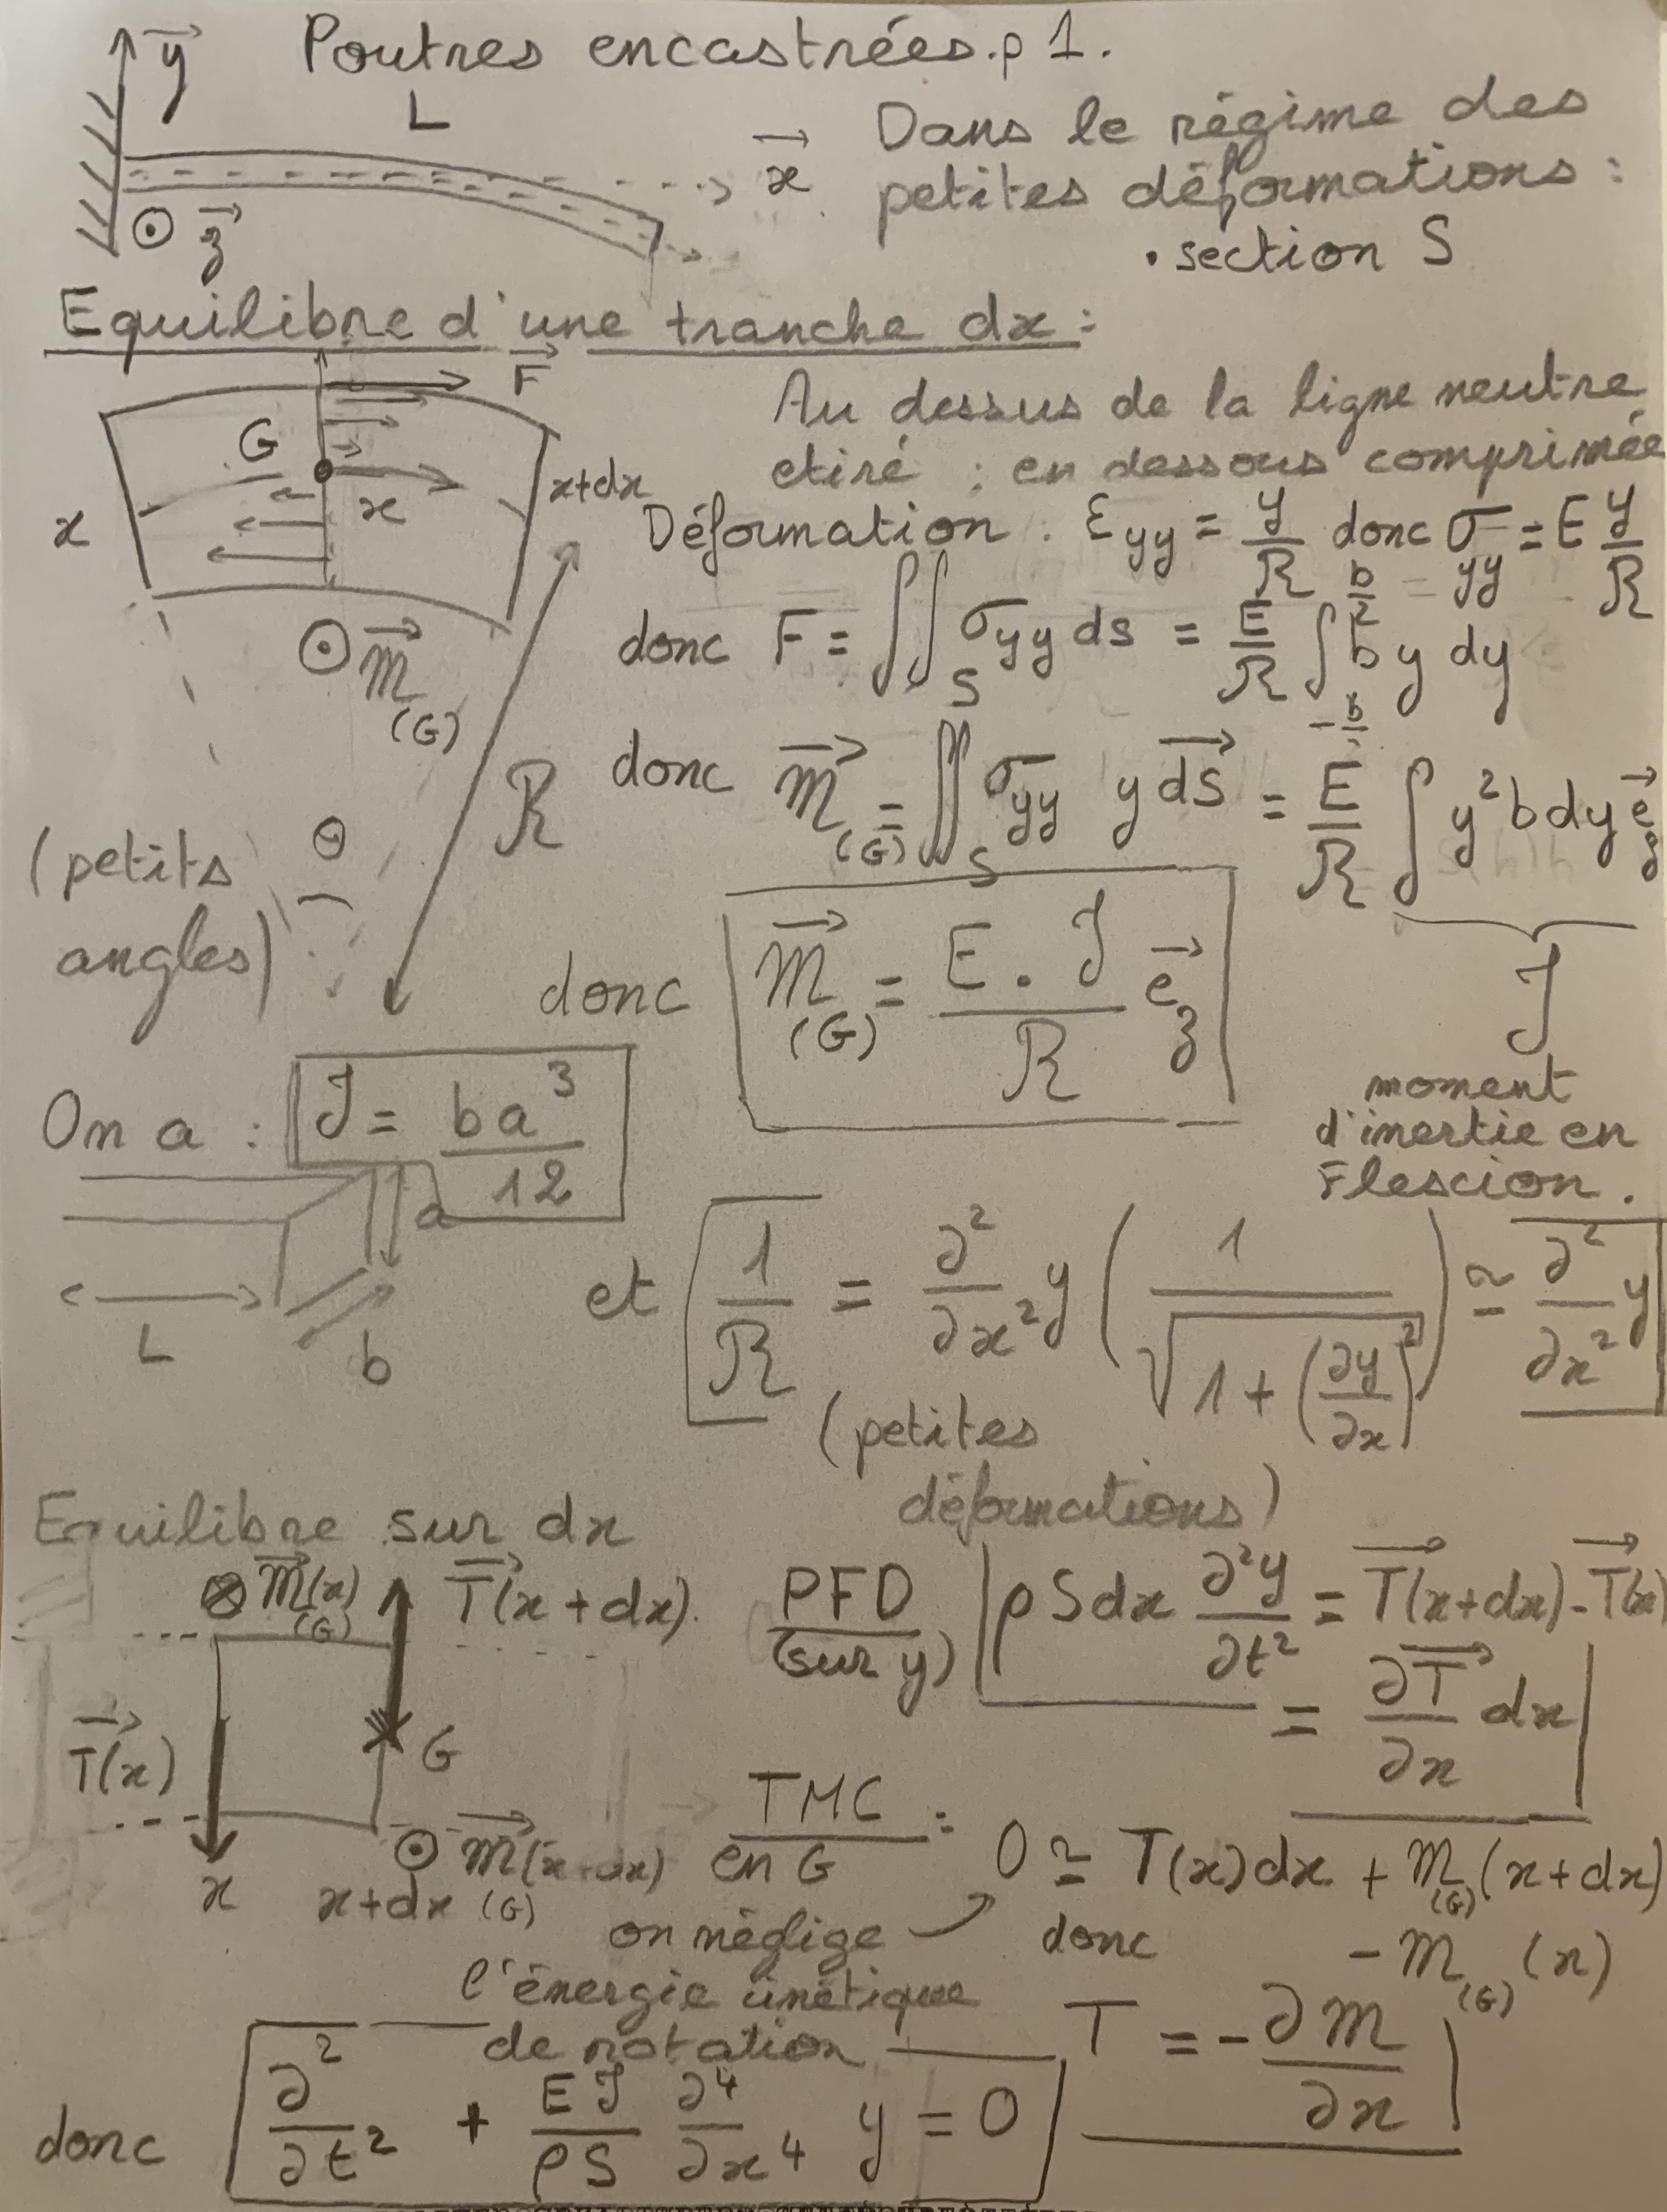 Poutres encastrées. p 1.
y
L
x
z
Dans le régime des
petites déformations :
• section S
Equilibre d'une tranche dx :
F
G
x
x
x+dx
m (G)
R
θ
(petits
angles)
Au dessus de la ligne neutre
etiré ; en dessous comprimée
Déformation : ε_yy = y/R donc σ_yy = E y/R
donc F = ∬_S σ_yy ds = E/R ∫ b y dy
donc m⃗_(G) = ∬_S σ_yy y dS⃗ = E/R ∫ y² b dy e⃗_z
J
moment
d'inertie en
Flexion.
donc m⃗_(G) = E . J / R e⃗_z
On a : J = ba³/12
a
L
b
et 1/R = ∂²/∂x² y ( 1 / √(1 + (∂y/∂x)²) ) ≃ ∂²/∂x² y
(petites
déformations)
Equilibre sur dx
m⃗(x) (G)
T⃗(x+dx).
T⃗(x)
G
x
x+dx
m⃗(x+dx) (G)
PFD (sur y) ρSdx ∂²y/∂t² = T⃗(x+dx) - T⃗(x)
= ∂T⃗/∂x dx
TMC en G : 0 ≃ T(x)dx + m_(G)(x+dx)
- m_(G)(x)
on néglige
l'énergie cinétique
de rotation
donc
T = - ∂m/∂x
donc ∂²/∂t² + EJ/ρS ∂⁴/∂x⁴ y = 0